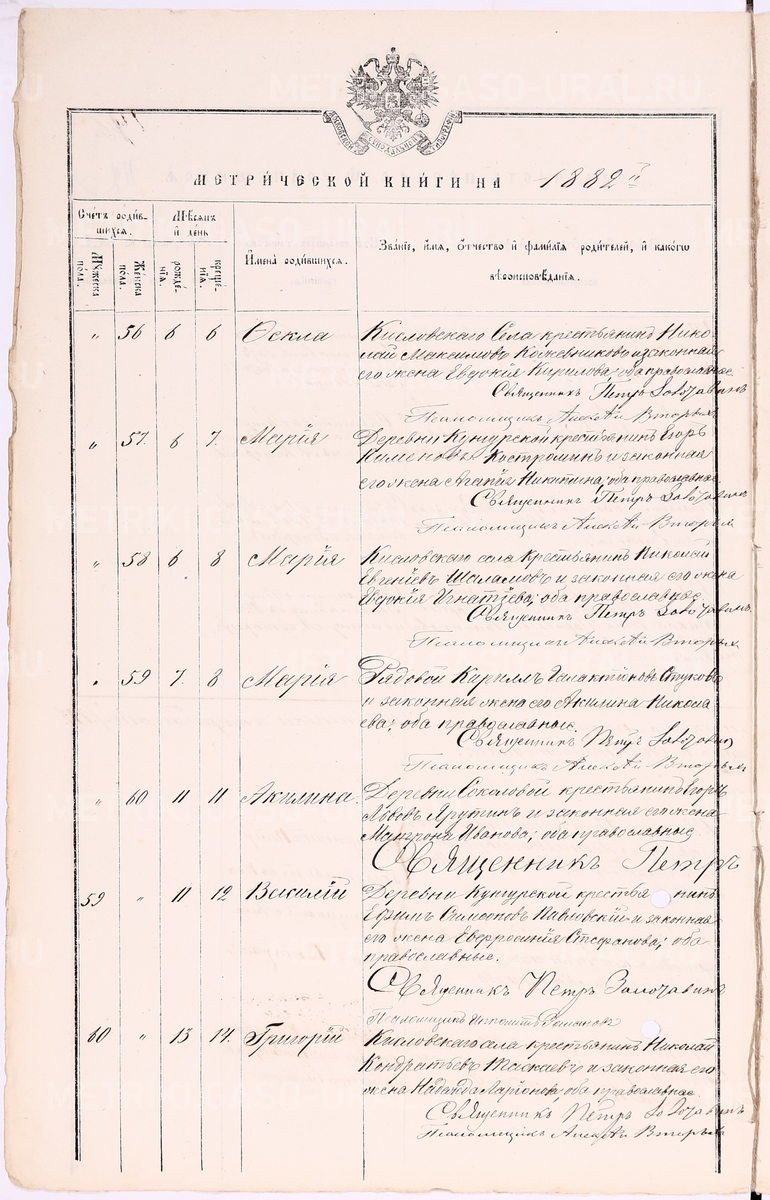 МЕТРИ́ЧЕСКОЙ КНИ́ГИ НА 1882й
Счетъ роди́вшихся.
Мѣсяцъ и день
Имена роди́вшихся.
Зва́нїе, и́мя, о́тчество и фами́лїя роди́телей, и како́гѡ
вѣроисповѣ́данїя.
Му́жеска пола.
Же́нска пола.
рожде́нїя.
креще́нїя.
" 56 6 6 Ѳекла Кисловскаго Села крестьянинъ Нико-
лай Максимовъ Кожевниковъ и законная
его жена Евдокія Кирилова; оба православные.
Священникъ Петръ
Псаломщикъ Алексѣй Вторыхъ
" 57. 6 7. Марія Деревни Кунгурской крестьянинъ Егоръ
Костроминъ и законная
его жена Агапія Никитина; оба православные
Священникъ Петръ
Псаломщикъ Алексѣй Вторыхъ
" 58 6 8 Марія Кисловскаго села крестьянинъ Николай
Евгеніевъ Шаламовъ и законная его жена
Евдокія Игнатіева; оба православные.
Священникъ Петръ
Псаломщикъ Алексѣй Вторыхъ
" 59 7. 8 Марія Рядовой Кириллъ Галактіоновъ
и законная жена его Акилина Никола-
ева; оба православные.
Священникъ Петръ
Псаломщикъ Алексѣй Вторыхъ
" 60 11 11 Акилина. Деревни Соколовой крестьянинъ Егоръ
Львовъ Ярутинъ и законная его жена
Матрона Иванова; оба православные
Священникъ Петръ
59 " 11 12 Василій Деревни Кунгурской крестьянинъ
Ефимъ Симеоновъ Павловскій и законная
его жена Евфросинія Стефанова; оба
православные.
Священникъ Петръ
Псаломщикъ
60 " 13 14. Григорій Кисловскаго села крестьянинъ Николай
Кондратьевъ и законная его
жена Надежда Ларіонова; оба православные.
Священникъ Петръ
Псаломщикъ Алексѣй Вторыхъ